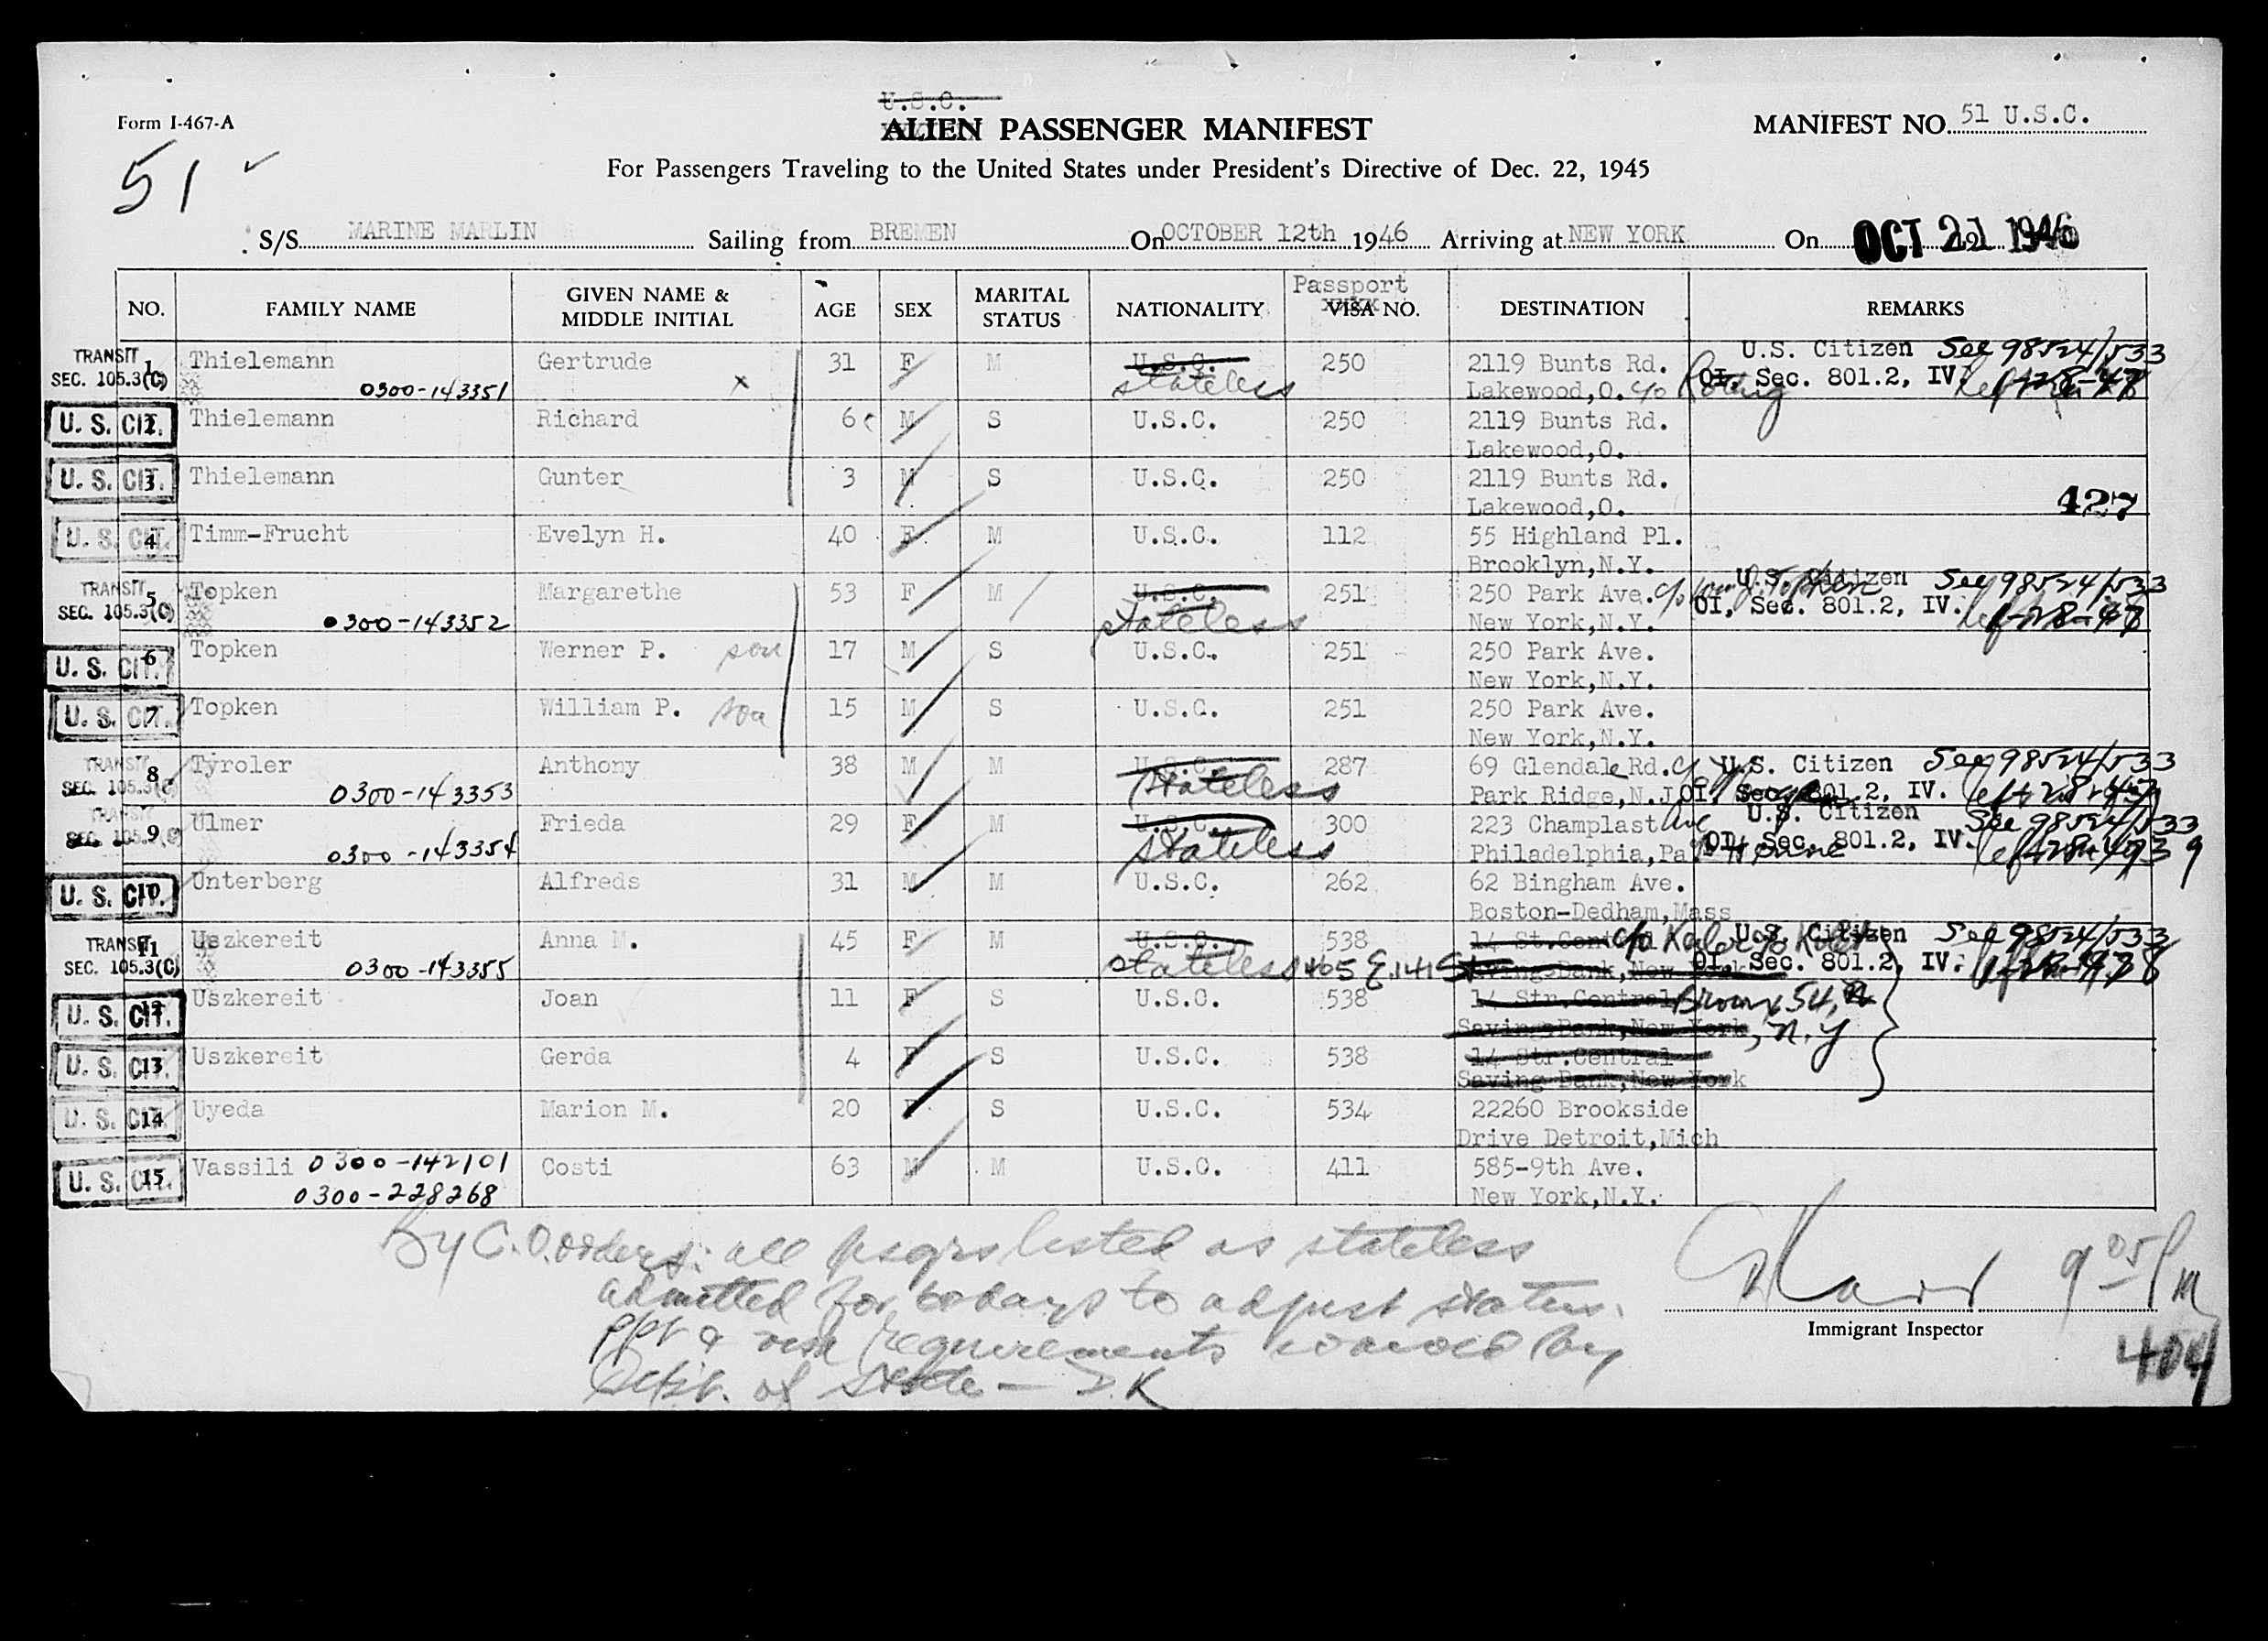 U.S.C.
Form I-467-A
ALIEN PASSENGER MANIFEST
MANIFEST NO. 51 U.S.C.
51
For Passengers Traveling to the United States under President's Directive of Dec. 22, 1945
S/S MARINE MARLIN Sailing from BREMEN On OCTOBER 12th 1946 Arriving at NEW YORK On OCT 21 1946
NO. FAMILY NAME GIVEN NAME & MIDDLE INITIAL AGE SEX MARITAL STATUS NATIONALITY Passport VISA NO. DESTINATION REMARKS
TRANSIT 1 Thielemann Gertrude 31 F M U.S.C. 250 2119 Bunts Rd. U.S. Citizen See 98524/533
SEC. 105.3(C) 0300-143351 x stateless Lakewood,O. c/o OI, Sec. 801.2, IV.
U. S. CIT. 2 Thielemann Richard 6 M S U.S.C. 250 2119 Bunts Rd.
Lakewood,O.
U. S. CIT. 3 Thielemann Gunter 3 M S U.S.C. 250 2119 Bunts Rd.
Lakewood,O. 427
U. S. CIT. 4 Timm-Frucht Evelyn H. 40 F M U.S.C. 112 55 Highland Pl.
Brooklyn,N.Y.
TRANSIT 5 Topken Margarethe 53 F M U.S.C. 251 250 Park Ave. c/o U.S. Citizen See 98524/533
SEC. 105.3(C) 0300-143352 stateless New York,N.Y. OI, Sec. 801.2, IV.
U. S. CIT. 6 Topken Werner P. son 17 M S U.S.C. 251 250 Park Ave.
New York,N.Y.
U. S. CIT. 7 Topken William P. son 15 M S U.S.C. 251 250 Park Ave.
New York,N.Y.
TRANSIT 8 Tyroler Anthony 38 M M U.S.C. 287 69 Glendale Rd. U.S. Citizen See 98524/533
SEC. 105.3(C) 0300-143353 stateless Park Ridge,N.J. OI, Sec. 801.2, IV.
TRANSIT 9 Ulmer Frieda 29 F M U.S.C. 300 223 Champlast Ave U.S. Citizen See 98524/533
SEC. 105.3(C) 0300-143354 stateless Philadelphia,Pa OI, Sec. 801.2, IV.
U. S. CIT. 10 Unterberg Alfreds 31 M M U.S.C. 262 62 Bingham Ave.
Boston-Dedham,Mass
TRANSIT 11 Uszkereit Anna M. 45 F M U.S.C. 538 14 St.Central c/o U.S. Citizen See 98524/533
SEC. 105.3(C) 0300-143355 stateless 405 E. 141 St Saving Bank,New York OI, Sec. 801.2, IV.
U. S. CIT. 12 Uszkereit Joan 11 F S U.S.C. 538 14 Str.Central Bronx 54,
Saving Bank,New York, N.Y
U. S. CIT. 13 Uszkereit Gerda 4 F S U.S.C. 538 14 Str.Central
Saving Bank,New York
U. S. CIT. 14 Uyeda Marion M. 20 F S U.S.C. 534 22260 Brookside
Drive Detroit,Mich
U. S. CIT. 15 Vassili 0300-142101 Costi 63 M M U.S.C. 411 585-9th Ave.
0300-228268 New York,N.Y.
By C.O. orders: all psgrs listed as stateless
admitted for 60 days to adjust status.
ppt & visa requirements waived by
Dept. of State
9 05 Pm
Immigrant Inspector
404